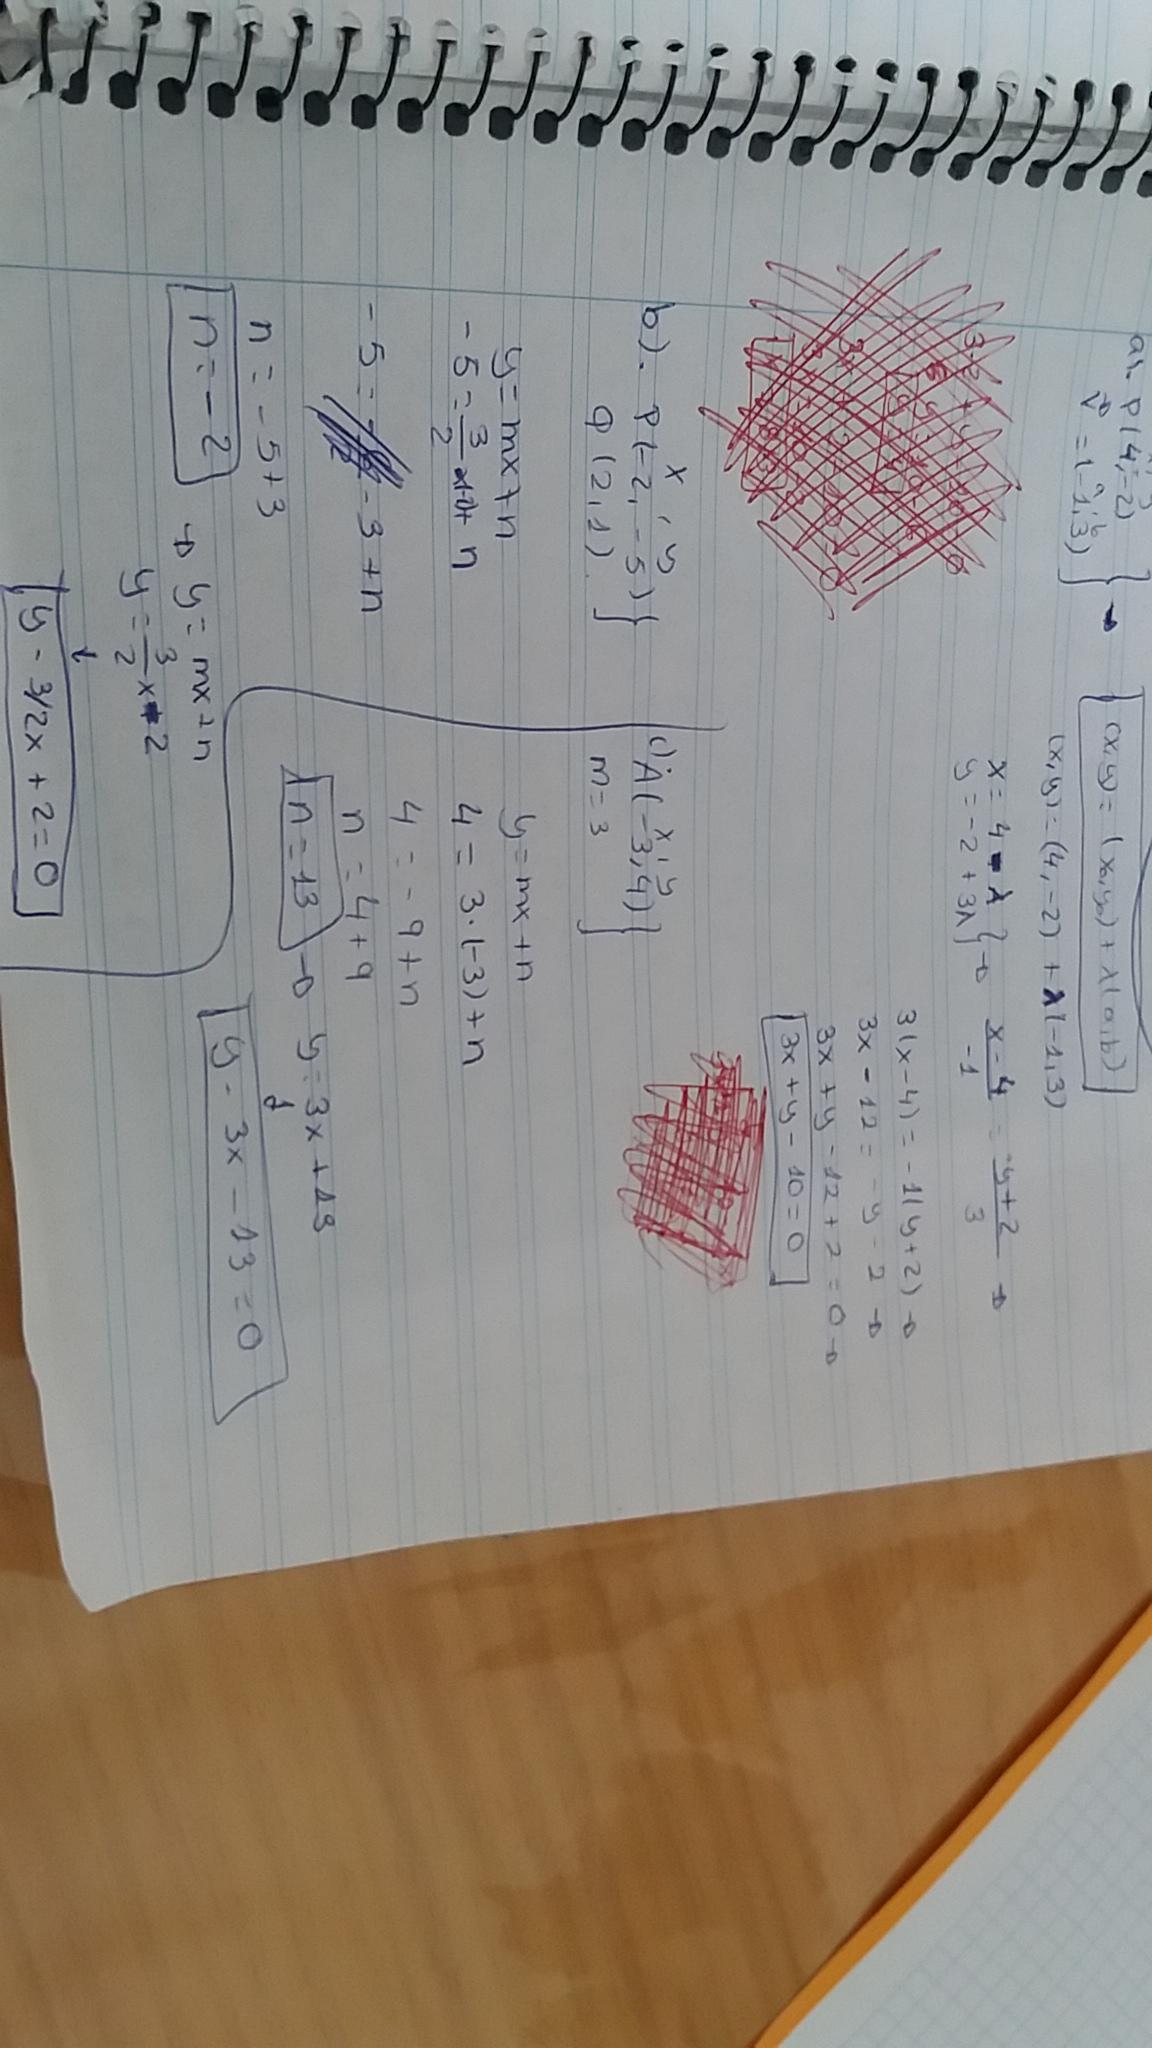 a). P(4,-2)
v⃗ = (-1,3) } →
(x,y) = (x₀,y₀) + λ(a,b)
(x,y) = (4,-2) + λ(-1,3)
x = 4 - λ
y = -2 + 3λ } → x-4/-1 = y+2/3 →
3(x-4) = -1(y+2) →
3x - 12 = -y - 2 →
3x + y - 12 + 2 = 0 →
3x + y - 10 = 0
b). P(-2, -5)
Q(2,1) }
x, y
y = mx + n
-5 = 3/2 · -2 + n
-5 = -3 + n
n = -5 + 3
n = -2
→ y = mx + n
y = 3/2 x - 2
↓
y - 3/2x + 2 = 0
c) A(-3,4)
x, y
m = 3 }
y = mx + n
4 = 3·(-3) + n
4 = -9 + n
n = 4 + 9
n = 13 → y = 3x + 13
↓
y - 3x - 13 = 0